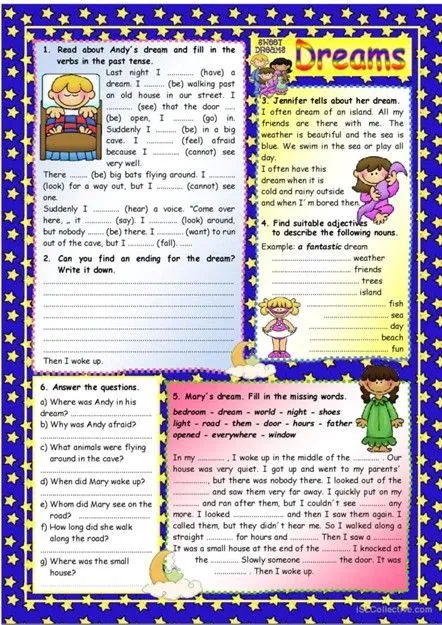 1. Read about Andy's dream and fill in the
verbs in the past tense.
Last night I ........... (have) a
dream. I ........ (be) walking past
an old house in our street. I
......... (see) that the door .....
(be) open, I .......... (go) in.
Suddenly I ........ (be) in a big
cave. I .......... (feel) afraid
because I ........... (cannot) see
very well.
There ........ (be) big bats flying around. I ..........
(look) for a way out, but I ........... (cannot) see
one.
Suddenly I .......... (hear) a voice. "Come over
here, „ it .......... (say). I ........... (look) around,
but nobody ........ (be) there. I .......... (want) to run
out of the cave, but I .......... (fall). ......
2. Can you find an ending for the dream?
Write it down.
Then I woke up.
SWEET
DREAMS
Dreams
3. Jennifer tells about her dream.
I often dream of an island. All my
friends are there with me. The
weather is beautiful and the sea is
blue. We swim in the sea or play all
day.
I often have this
dream when it is
cold and rainy outside
and when I'm bored then.
4. Find suitable adjectives
to describe the following nouns.
Example: a fantastic dream
........................ weather
........................ friends
........................ trees
........................ island
........................ fish
........................ sea
........................ day
........................ beach
........................ fun
6. Answer the questions.
a) Where was Andy in his
dream? ........................
b) Why was Andy afraid?
c) What animals were flying
around in the cave?
d) When did Mary wake up?
e) Whom did Mary see on the
road? ........................
f) How long did she walk
along the road?
g) Where was the small
house?
5. Mary's dream. Fill in the missing words.
bedroom - dream - world - night - shoes
light - road - them - door - hours - father
opened - everywhere - window
In my .........., I woke up in the middle of the .......... Our
house was very quiet. I got up and went to my parents'
.............., but there was nobody there. I looked out of the
.............. and saw them very far away. I quickly put on my
.............. and ran after them, but I couldn't see .......... any
more. I looked .............. and then I saw them again. I
called them, but they didn't hear me. So I walked along a
straight ............ for hours and ............ Then I saw a ..........
It was a small house at the end of the ............ I knocked at
the ............ Slowly someone ............ the door. It was
.............. . Then I woke up.
iSLCollective.com